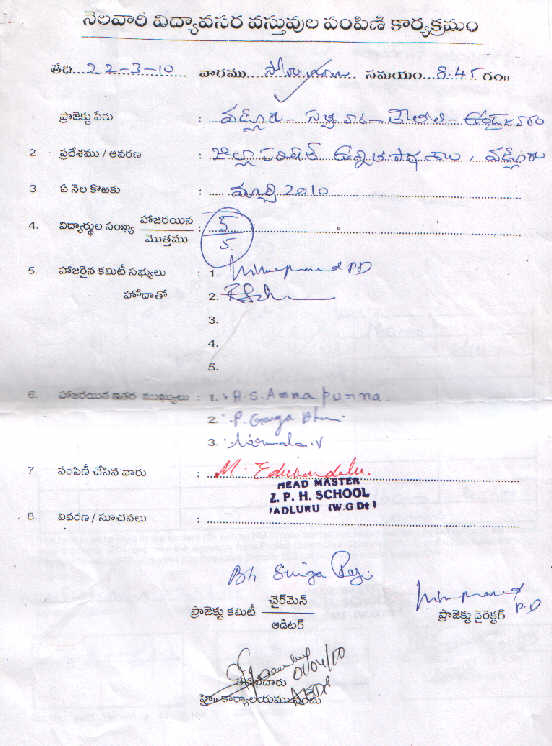 నెలవారీ విద్యావసర వస్తువుల పంపిణీ కార్యక్రమం
తేది 22-3-10 వారము సోమవారం సమయం 8.45 గం॥
ప్రాజెక్టు పేరు :
2 ప్రదేశము / ఆవరణ : జిల్లా పరిషత్ ఉన్నత పాఠశాల, వడ్లూరు
3 ఏ నెల కొఱకు : మార్చి 2010
4. విద్యార్థుల సంఖ్య హాజరయిన / మొత్తము : 5 / 5
5. హాజరైన కమిటీ సభ్యులు : 1. PD
హోదాతో 2.
3.
4.
5.
6. హాజరయిన ఇతర ముఖ్యులు : 1. A.S. Annapurna
2. P. Ganga
3. Nirmala.V
7. పంపిణీ చేసిన వారు : M.
HEAD MASTER
Z. P. H. SCHOOL
VADLURU (W.G Dt)
8. వివరణ / సూచనలు :
Bh
ప్రాజెక్టు కమిటీ చైర్‌మెన్ / ఆడిటర్
P.D
ప్రాజెక్టు డైరెక్టర్
01/04/10